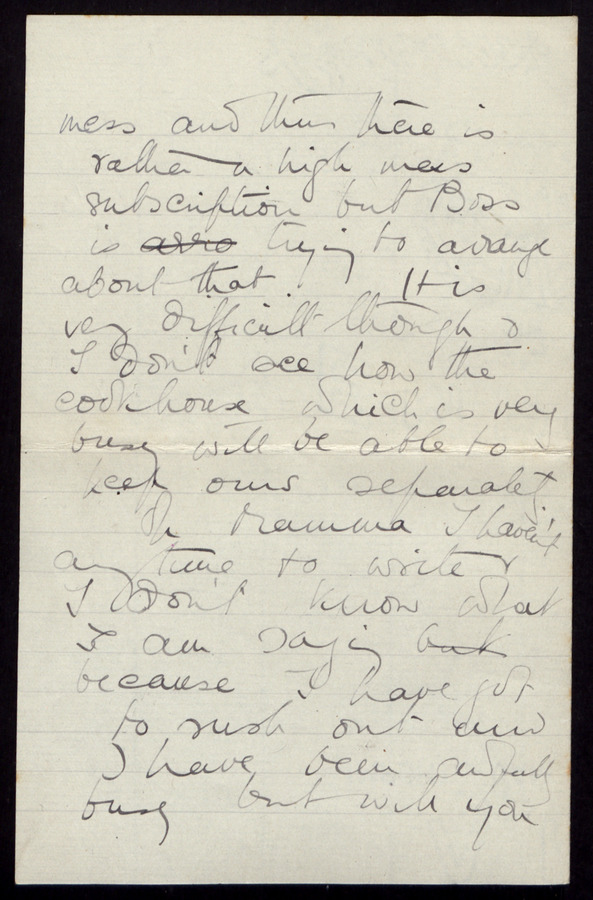 mess and thus there is
rather a high mess
subscription but Boss
is arro trying to arrange
about that. It is
very difficult though &
I don't see how the
cookhouse which is very
busy will be able to
keep ours separately.
Oh Mamma I haven't
any time to write &
I don't know what
I am saying but
because I have got
to rush out and
I have been awfully
busy but will you